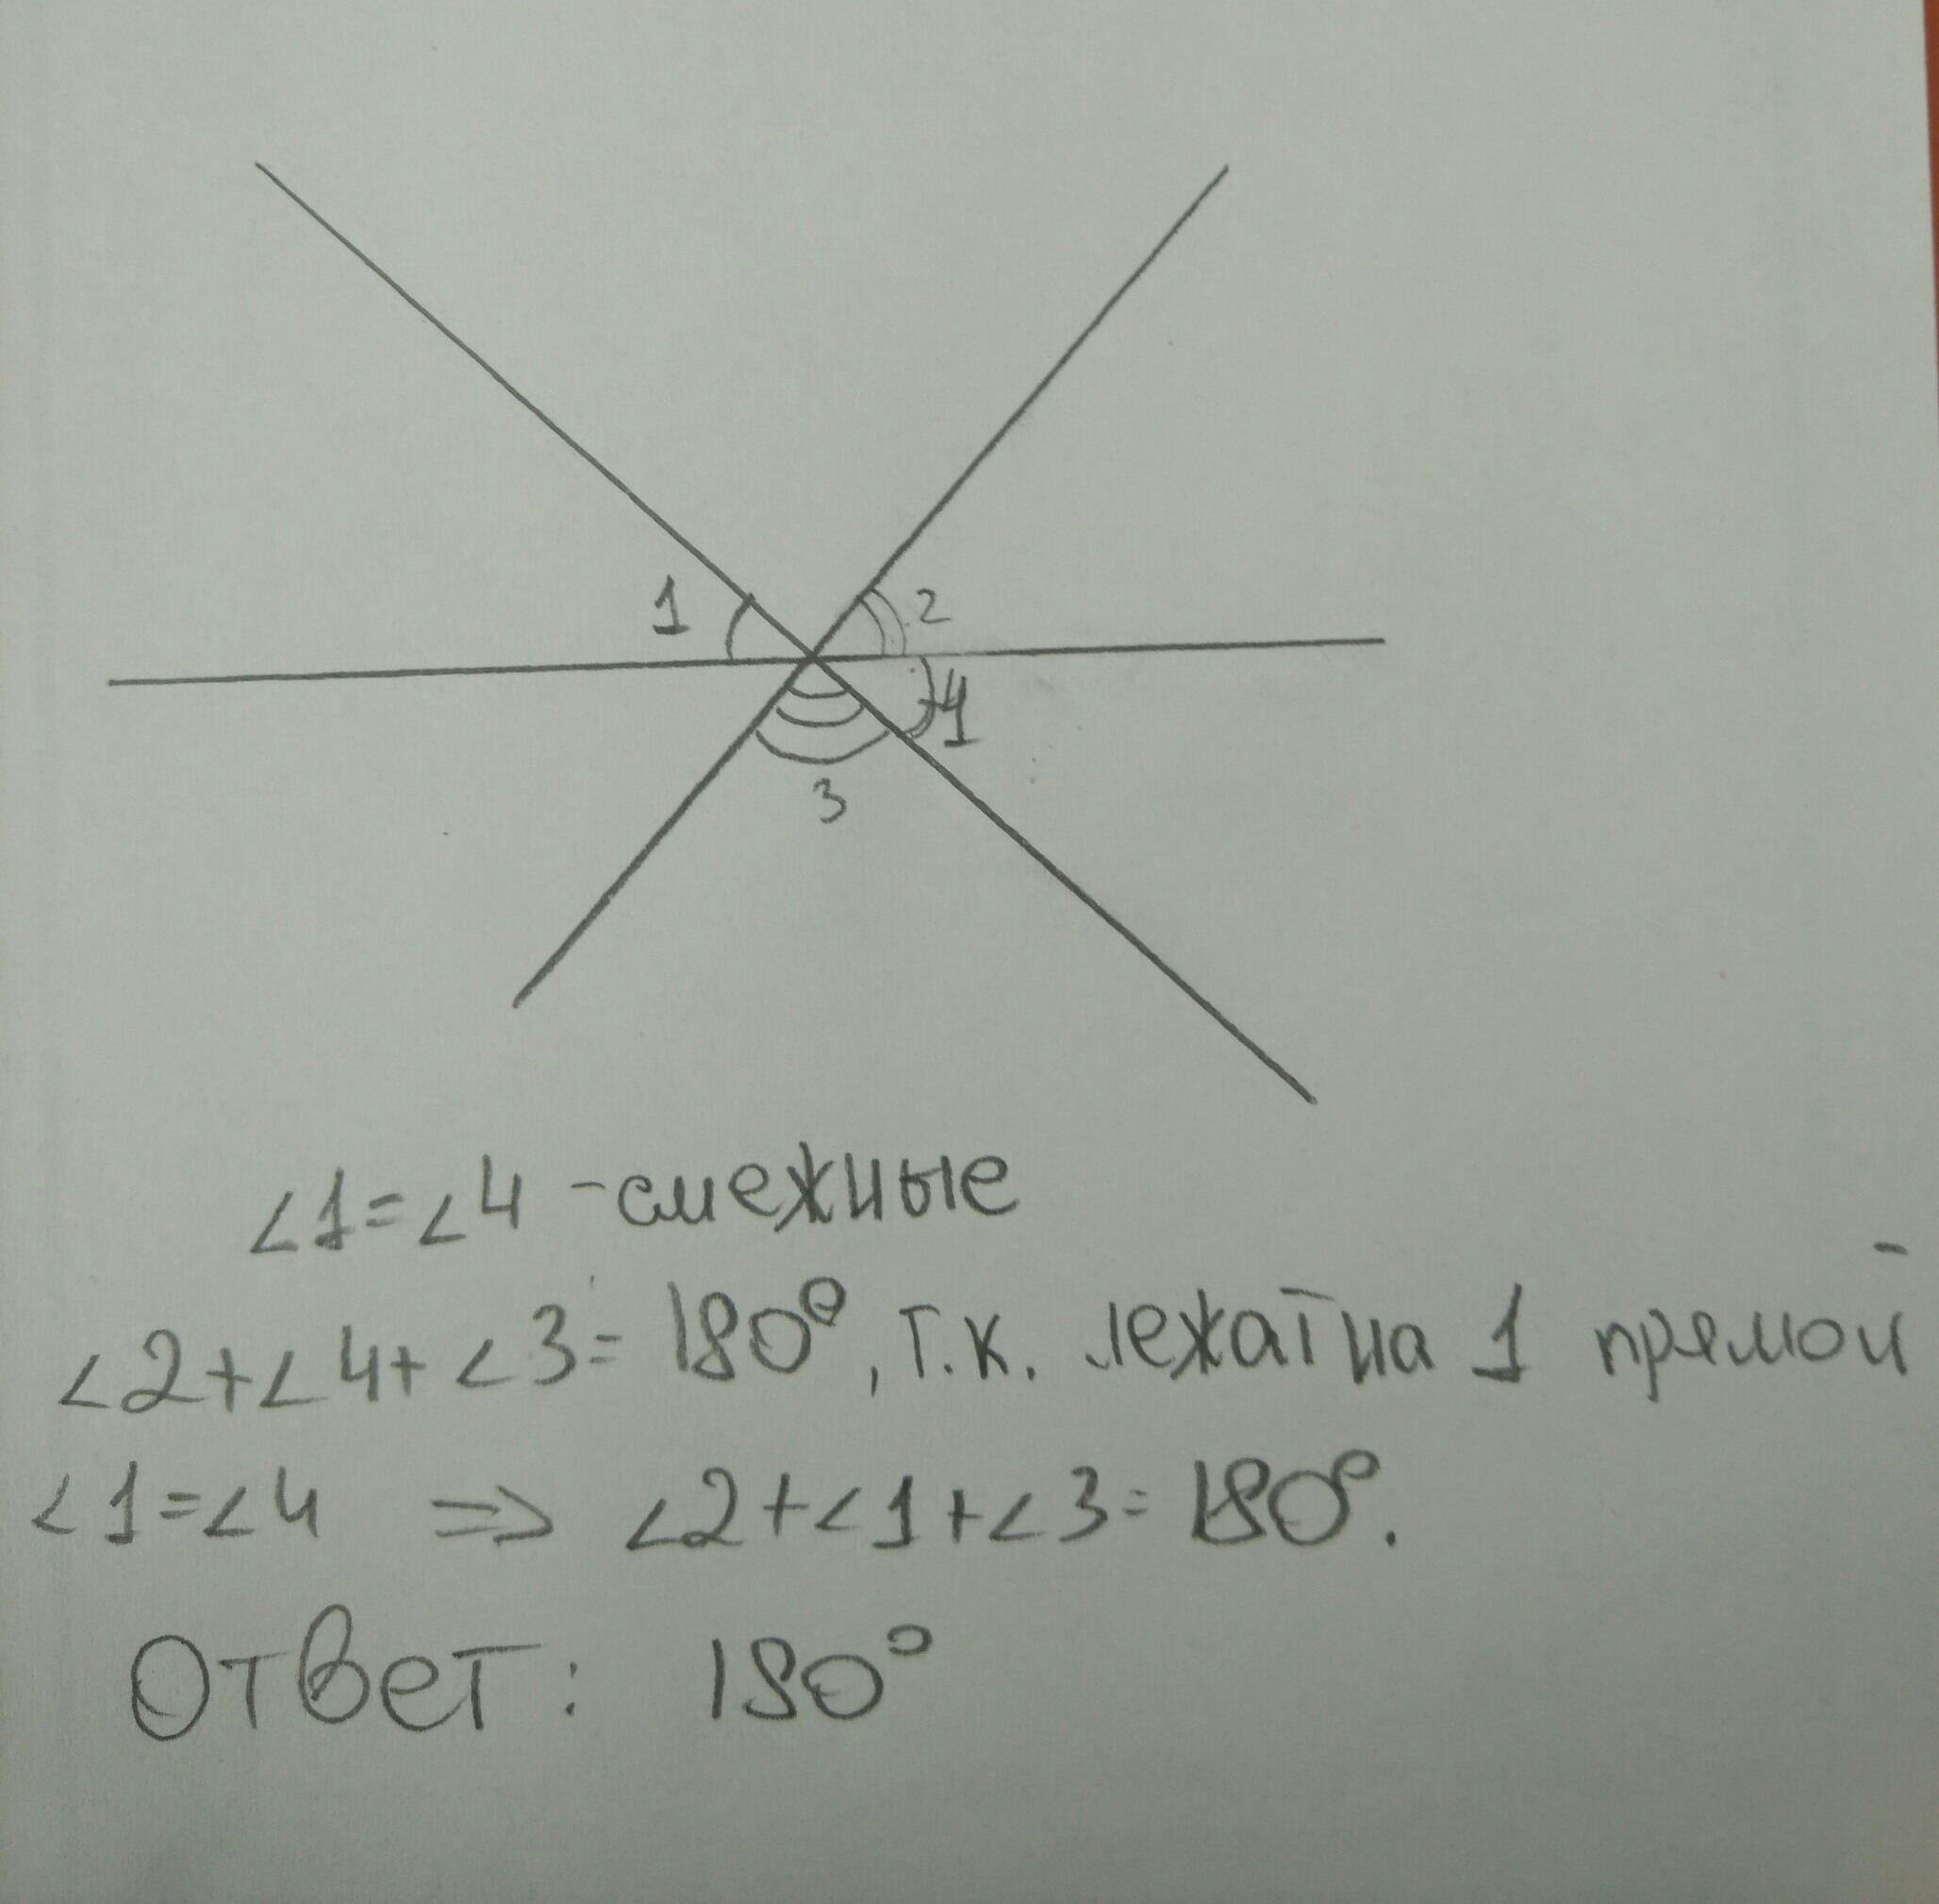 1
2
4
3
∠1=∠4 -смежные
∠2+∠4+∠3=180°, т.к. лежат на 1 прямой
∠1=∠4 => ∠2+∠1+∠3=180°.
Ответ: 180°